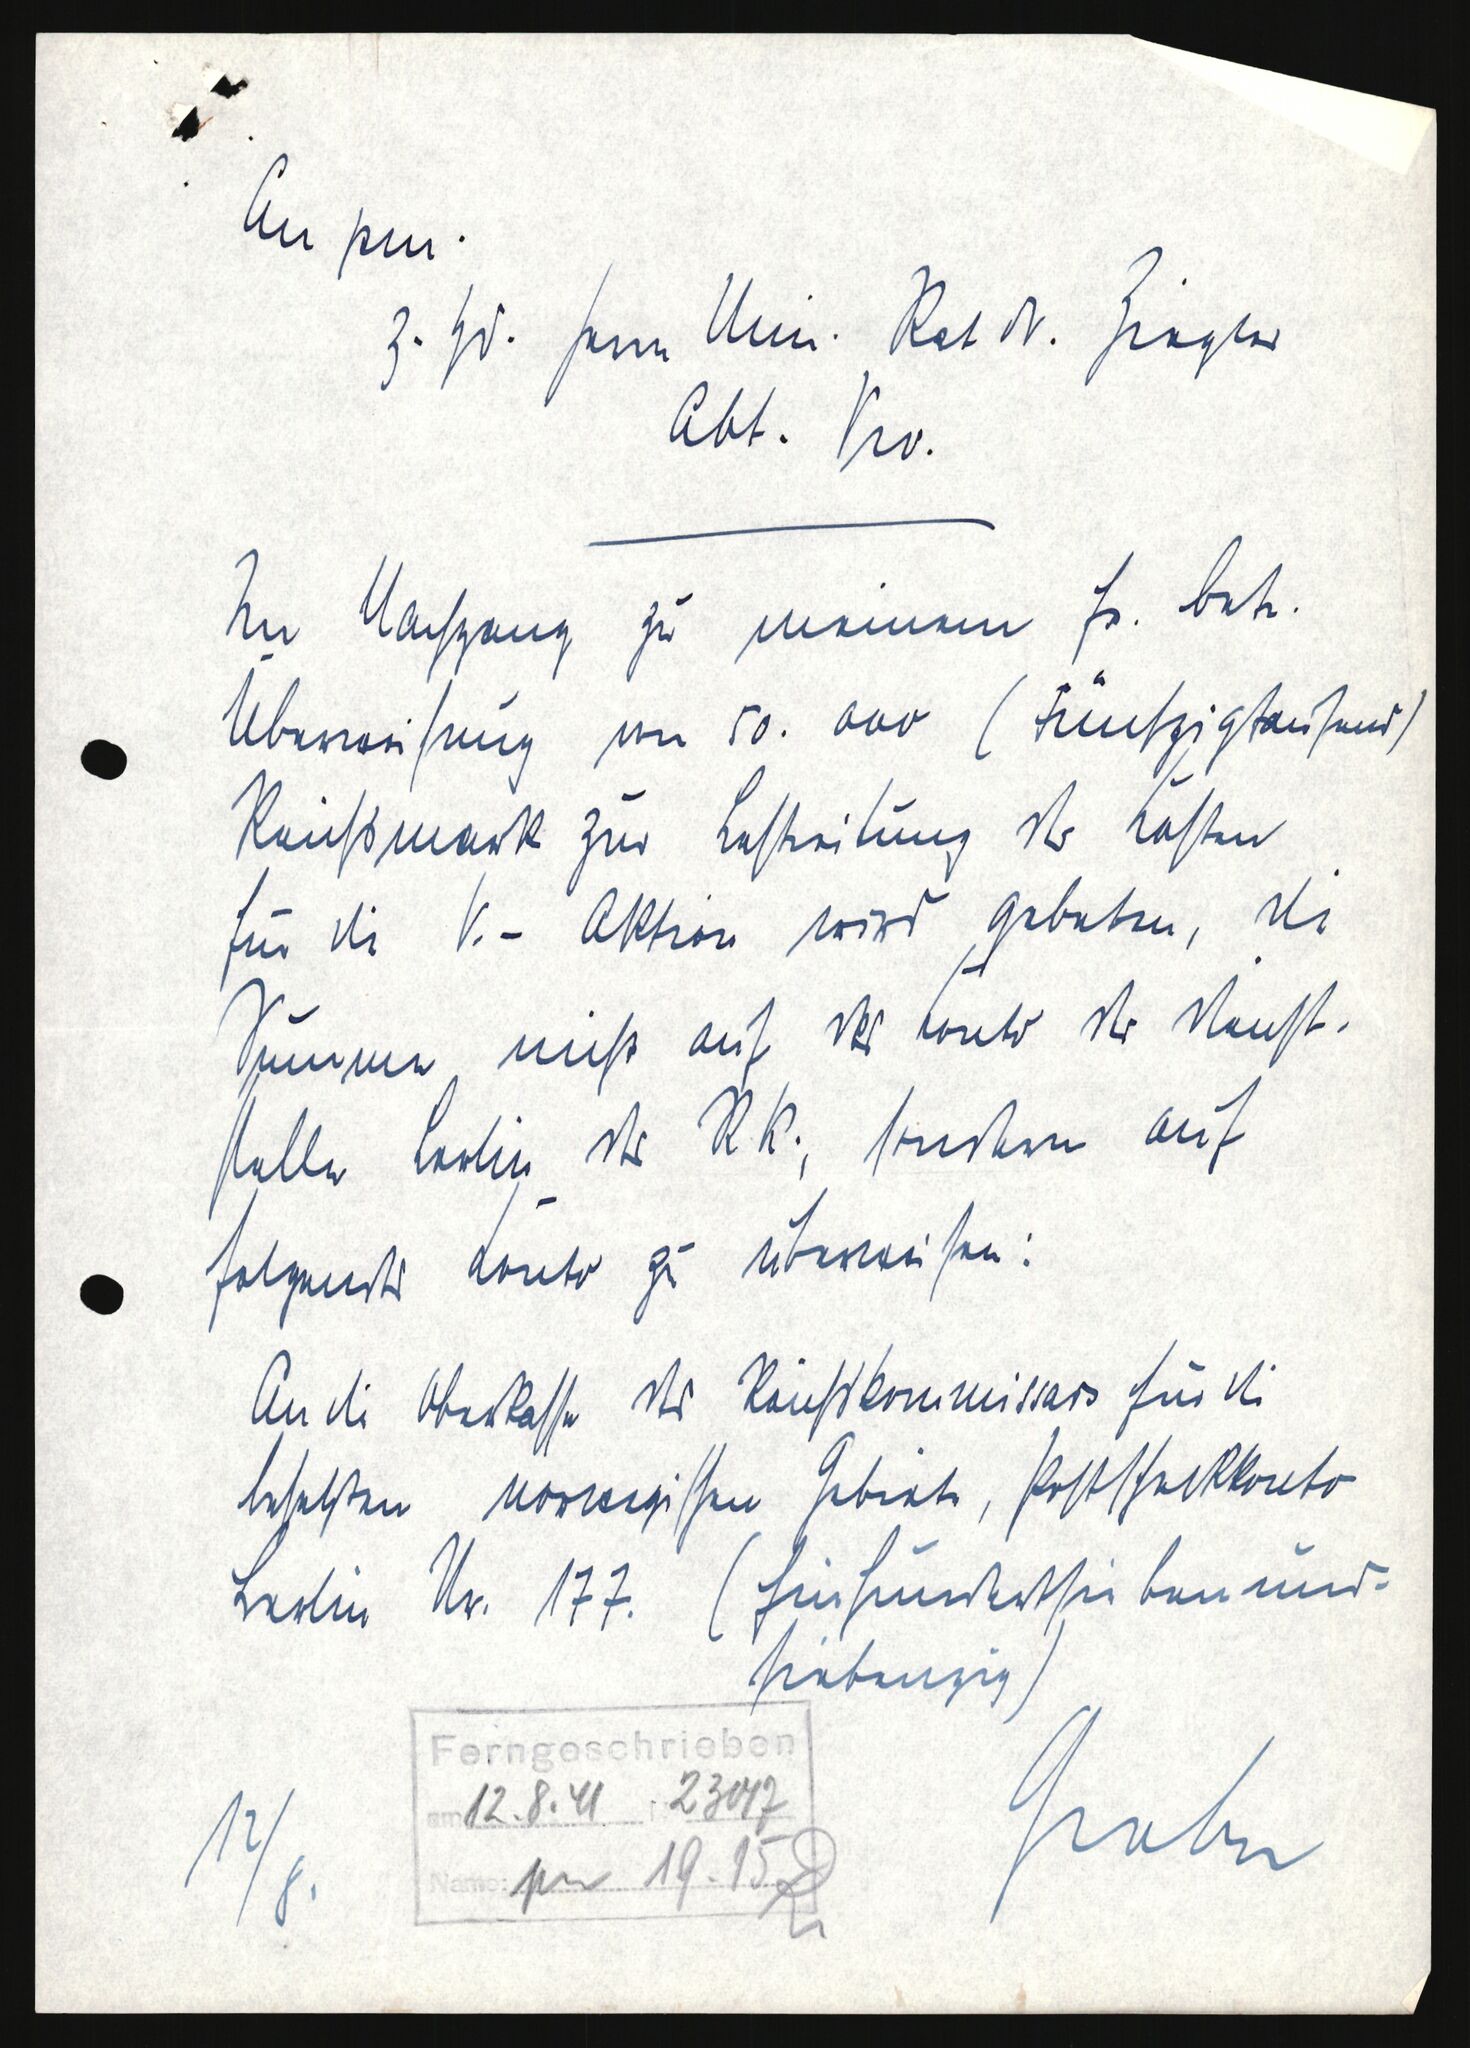 An pm.
z. Hd. Herrn Min. Rat Dr. Ziegler
Abt. Pro.
Im Nachgang zu meinem Fs. betr.
Überweisung von 50.000 (Fünfzigtausend)
Reichsmark zur Bestreitung der Kosten
für die V.- Aktion wird gebeten, die
Summe nicht auf das Konto der Dienst-
stelle Berlin des RK., sondern auf
folgendes Konto zu überweisen:
An die Oberkasse des Reichskommissars für die
besetzten norwegischen Gebiete, Postscheckkonto
Berlin Nr. 177. (Einhundertsiebenund-
siebenzig)
Ferngeschrieben
am 12.8.41 23047
Name: pm 19.15
12/8.